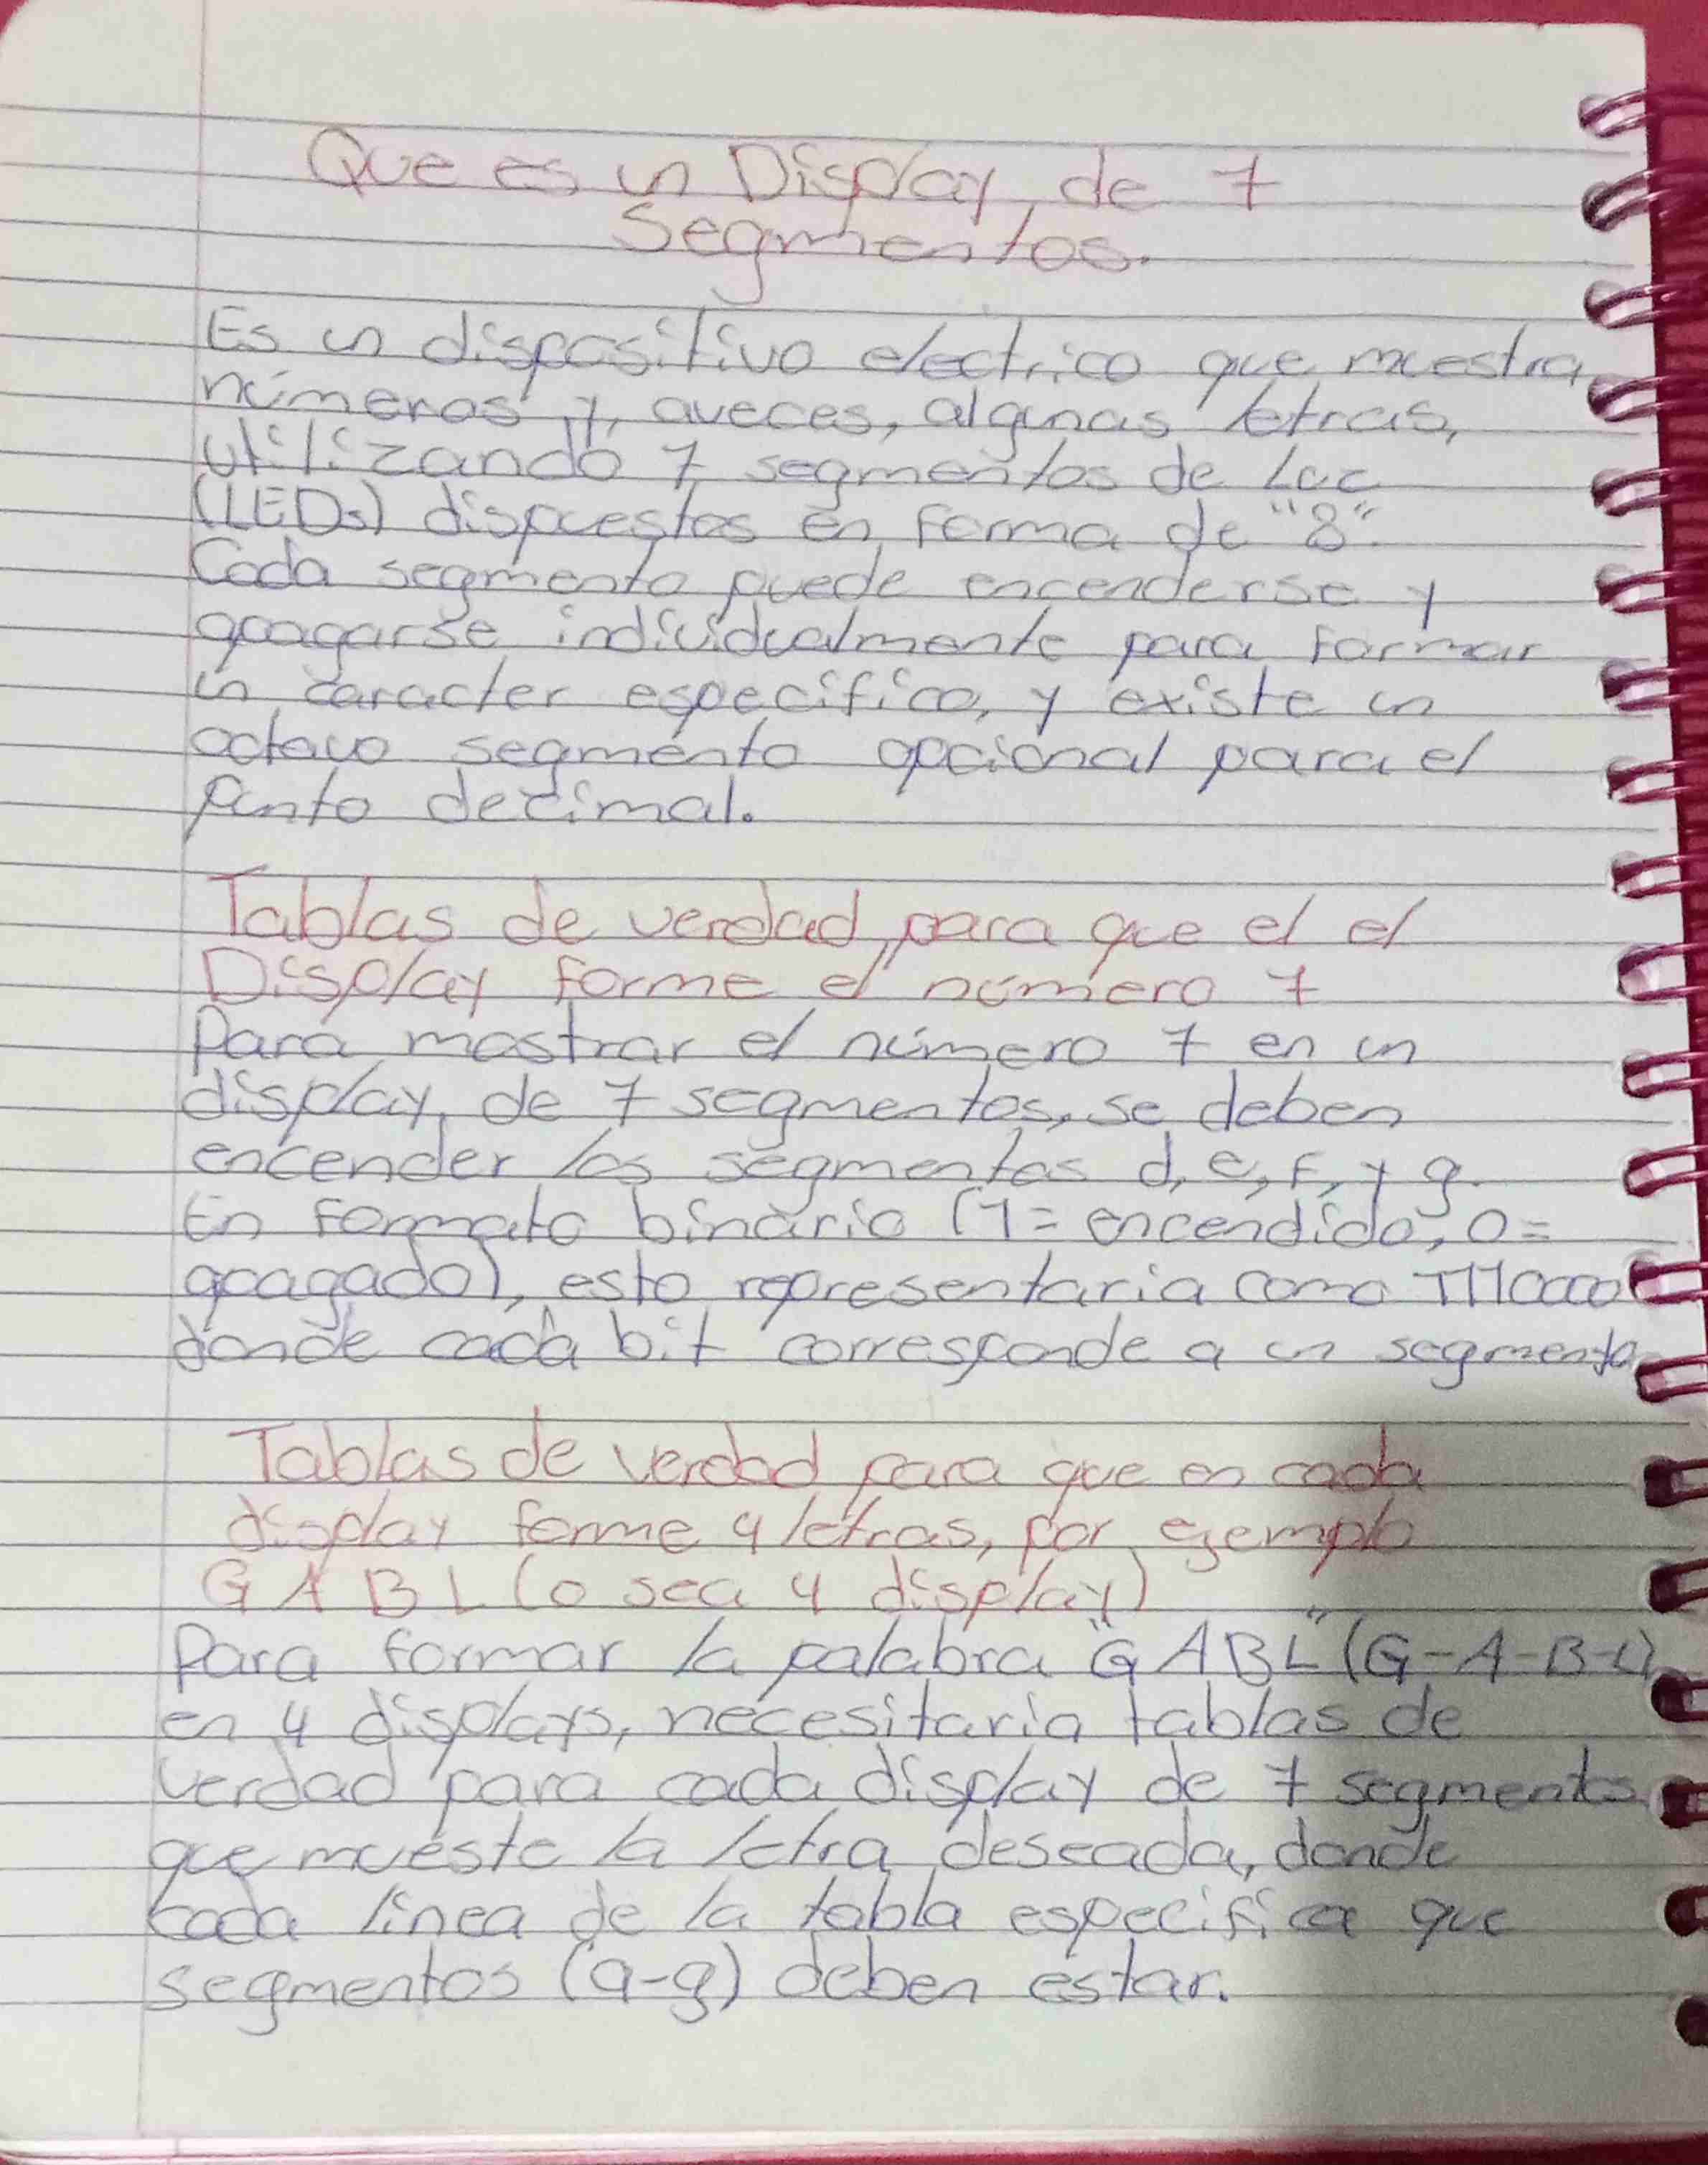 Que es un Display de 7
segmentos.
Es un dispositivo electrico que muestra
números y, aveces, algunas letras,
utilizando 7 segmentos de Luc
(LEDs) dispuestos en forma de "8".
Cada segmento puede encenderse y
apagarse individualmente para formar
un caracter especifico, y existe un
octavo segmento opcional para el
punto decimal.
Tablas de verdad para que el el
Display forme el número 7
Para mostrar el número 7 en un
display de 7 segmentos, se deben
encender los segmentos d, e, f, y g.
En formato binario (1= encendido, 0=
apagado), esto representaria como 1110000
donde cada bit corresponde a un segmento
Tablas de verdad para que en cada
display forme 4 letras, por ejemplo
G A B L (o sea 4 display)
Para formar la palabra "GABL" (G-A-B-L)
en 4 displays, necesitaria tablas de
verdad para cada display de 7 segmentos
que mueste la letra deseada, donde
cada linea de la tabla especifica que
segmentos (a-g) deben estar.